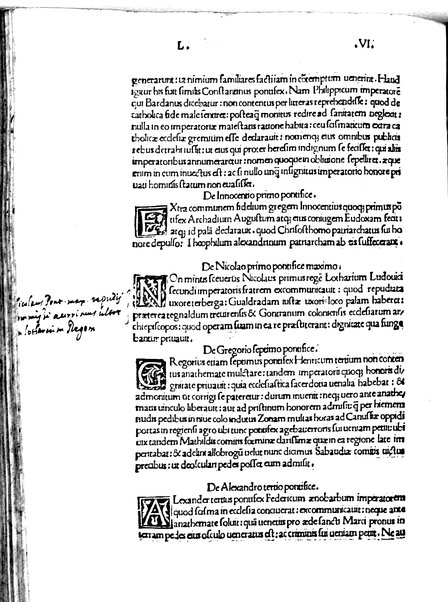 L. .VI.
generarunt: ut nimium familiares facti iam in contemptum uenerint. Haud
igitur his fuit similis Constantinus pontifex. Nam Philippicum imperatorē
qui Bardanus dicebatur: non contentus per litteras reprehendisse: quod de
catholica fide male sentiret: posteaq̄ monitus redire ad sanitatem neglexit:
nulla in eo imperatoriæ maiestatis ratione habita: ceu scismaticum extra ca
tholicæ ecclesiæ gremium esse declarauit: nomenq; eius omnibus publicis
rebus detrahi iussit: ut eius qui procer heresim indignum se fecisset: qui aliis
imperatoribus annumeraretur: nomen quoque in obliuione sepelliret. æque
enim in eum inuectus est: ac si nullo unq̄ insignitus imperatorio honore pri
uati hominis statum non euasisset.
De Innocentio primo pontifice.
EXtra communem fidelium gregem Innocentius quoq; primus pō
tifex Archadium Augustum atq; eius coniugem Eudoxam fecit:
atq; id palā declarauit. quod Chrisosthomo patriarchatus sui ho
nore depulso: Theophilum alexandrinum patriarcham ab eis suffecerant.
De Nicolao primo pontifice maximo.
NOn mintis seuerus Nicolaus primus regē Lotharium Ludouici
secundi imperatoris fratrem excommunicauit: quod repudiata
uxore terberga: Gualdradam iustæ uxori loco palam haberet:
præterea regnaldum treuerensis & Gontranum coloniensis ecclesiarum ar
chiepiscopos: quod operam suam in ea re præstiterant: dignitate qua funge
bantur priuauit.
nicolaus Pont. max. repudij
Lothariem Regem
De Gregorio septimo pontifice.
GRegorius etiam septimus pontifex Henricum tertium non conten
tus anathemate mulctare: tandem imperatorii quoq; honoris di
gnitate priuauit: quia ecclesiastica sacerdotia uenalia habebat: &
admonitus ut corrigi se pateretur: durum inuenit: neq; uero ante anathe
matis uinculo liberauit: aut ad pristinum honorem admisit: q̄ per hiemem
nudis pedibus in niue colo indutus Zonam multas horas ad Canusiæ oppidi
portas in regiensi agro ubi tunc pontifex agebat erroris sui ueniam petiit: ubi
eix tandem Mathildis comitis forminæ clarissimæ quæ in ea regione late im
peritabat: & adelcini allobrogū uel ut nunc dicimus Sabaudiæ comitis uictus
precibus: ut deosculari pedes posset eum admisit.
De Alexandro tertio pontifice.
ALexander tertius pontifex Federicum ænobarbum imperatorem
quod scisma in ecclesia conquerat: excommunicauit: neque ante
anathemate soluit: q̄ uenetiis pro æde sancti Marci pronus in
terram pedes eius osculo ueneratus est: ac criminis sui ueniam petiit. Ne au